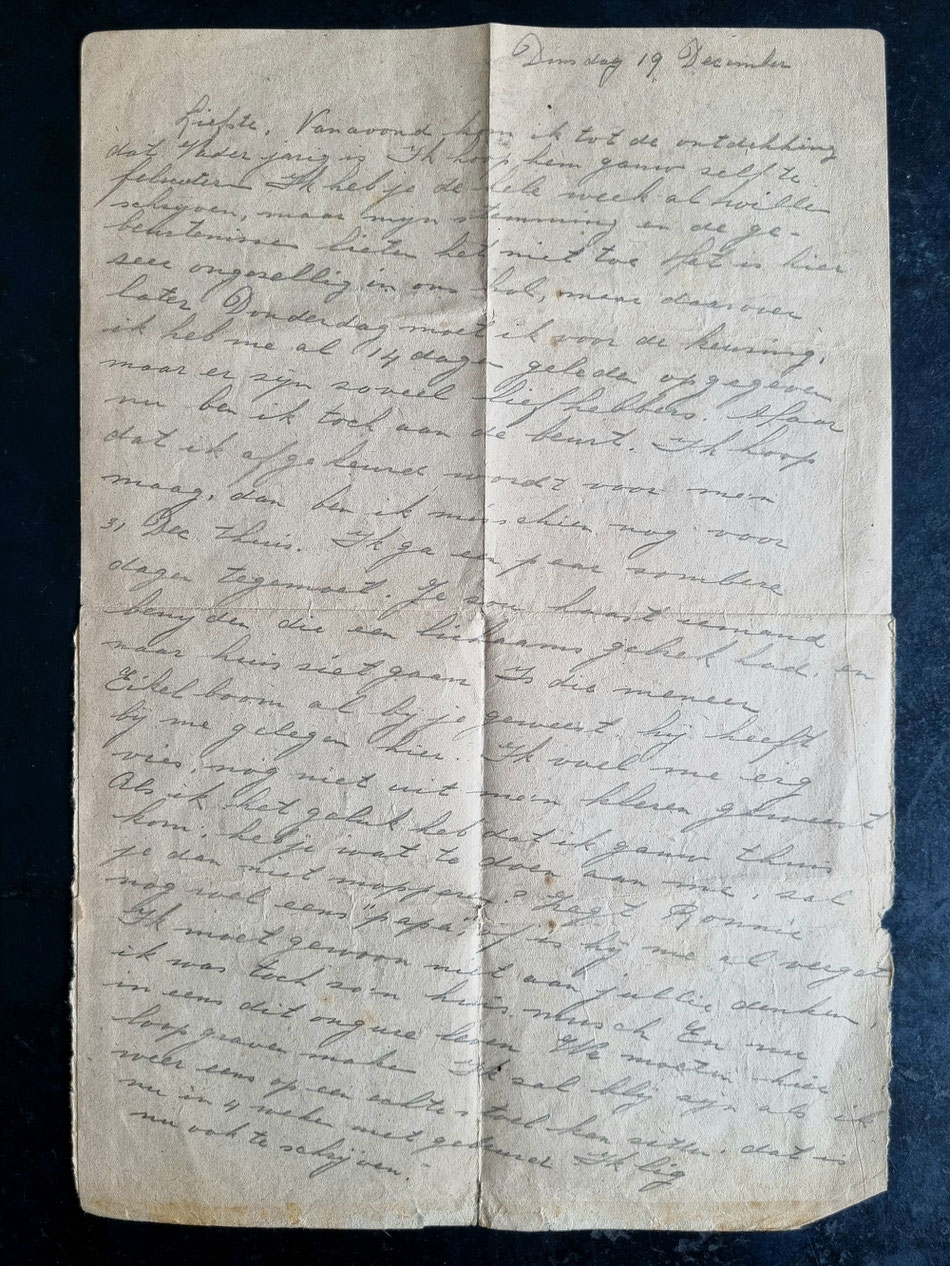 Dinsdag 19 December
Liefste, Vanavond kom ik tot de ontdekking
dat Vader jarig is Ik hoop hem gauw self te
feliciteren Ik heb je de hele week al willen
schrijven, maar mijn stemming en de ge-
beurtenissen lieten het niet toe Het is hier
seer ongesellig in ons hol, maar daarover
later Donderdag moet ik voor de keuring,
ik heb me al 14 dagen geleden opgegeven
maar er sijn soveel liefhebbers. Maar
nu ben ik toch aan de beurt. Ik hoop
dat ik afgekeurd wordt voor men
maag, dan ben ik misschien nog voor
31 Dec. thuis. Ik ga een paar sombere
dagen tegemoet. Je sou haast iemand
benijden die een lichaams gebrek had, en
naar huis siet gaan Is die meneer
Eikelboom al bij je geweest. hij heeft
bij me gelegen hier. Ik voel me erg
vies, nog niet uit men kleren geweest
Als ik het geluk heb dat ik gauw thuis
kom, heb je wat te doen aan me, sal
je dan niet mopperen? Zegt Ronnie
nog wel eens "papa" of is hij me al vergeten
Ik moet gewoon niet aan jullie denken,
ik was toch so'n huis musch En nu
in eens dit ongure leven We moeten hier
loopgraven maken Ik sal blij sijn als ik
weer eens op een echte stoel kan sitten, dat is
nu in 4 weken niet gebeurd Ik lig
nu ook te schrijven.